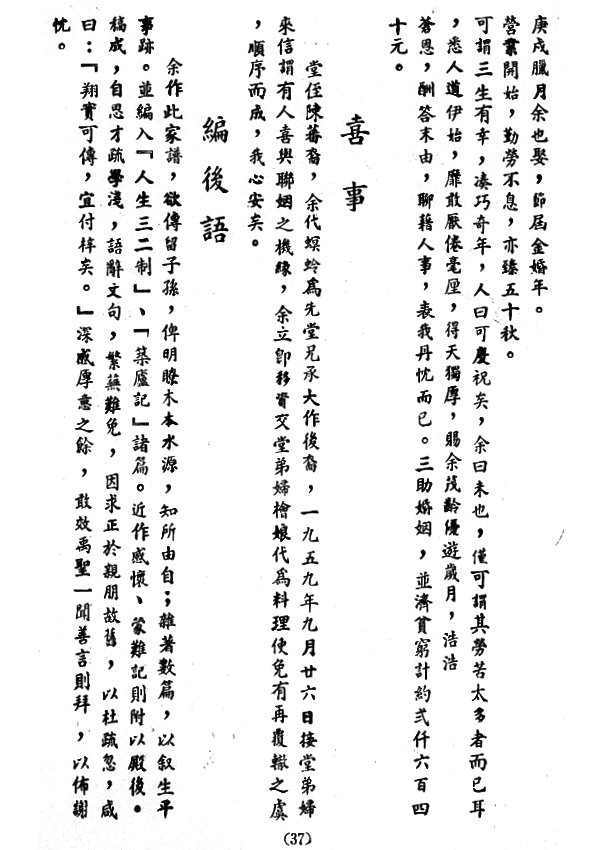 庚戌臘月余也娶,節屆金婚年。
營業開始,勤勞不息,亦臻五十秋。
可謂三生有幸,湊巧奇年,人曰可慶祝矣,余曰未也,僅可謂其勞苦太多者而已耳
,悉人道伊始,靡敢厭倦毫厘,得天獨厚,賜余茂齡優遊歲月,浩浩
蒼恩,酬答末由,聊藉人事,表我丹忱而已。三助婚姻,並濟貧窮計約弍仟六百四
十元。
喜事
堂侄陳蕃裔,余代螟蛉為先堂兄承大作後裔,一九五九年九月廿六日接堂弟婦
來信謂有人喜與聯姻之機緣,余立即移資交堂弟婦檜娘代為料理使免有再覆轍之虞
,順序而成,我心安矣。
編後語
余作此家譜,欲傳留子孫,俾明瞭木本水源,知所由自;雜著數篇,以叙生平
事跡。並編入『人生三二制」、「築廬記」諸篇。近作感懷、蒙難記則附以殿後。
稿成,自思才疏學淺,語辭文句,繁蕪難免,因求正於親朋故舊,以杜疏忽,咸
曰:「翔實可傳,宜付梓矣。」深感厚意之餘,敢效禹聖一聞善言則拜,以佈謝
忱。
(37)